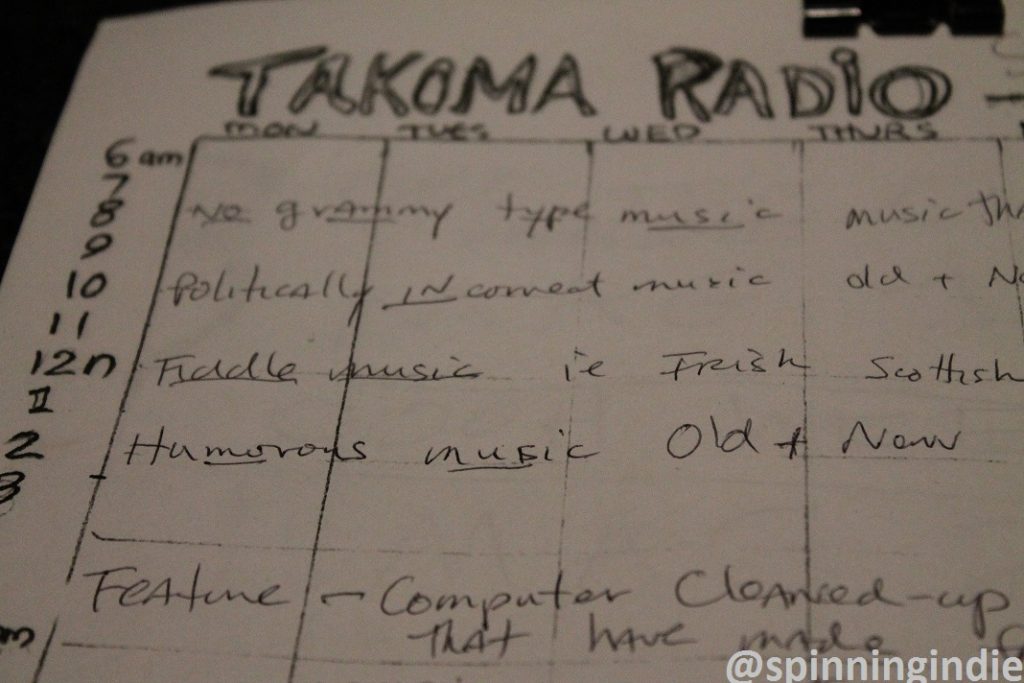 TAKOMA RADIO -
MON TUES WED THURS
6 am
7
8 NO grammy type music music
9
10 Politically INcorrect music old +
11
12n Fiddle music ie Irish Scottish
II
2 Humorous music Old + New
3
Feature - Computer Cleaned-up
that have made
@spinningindie